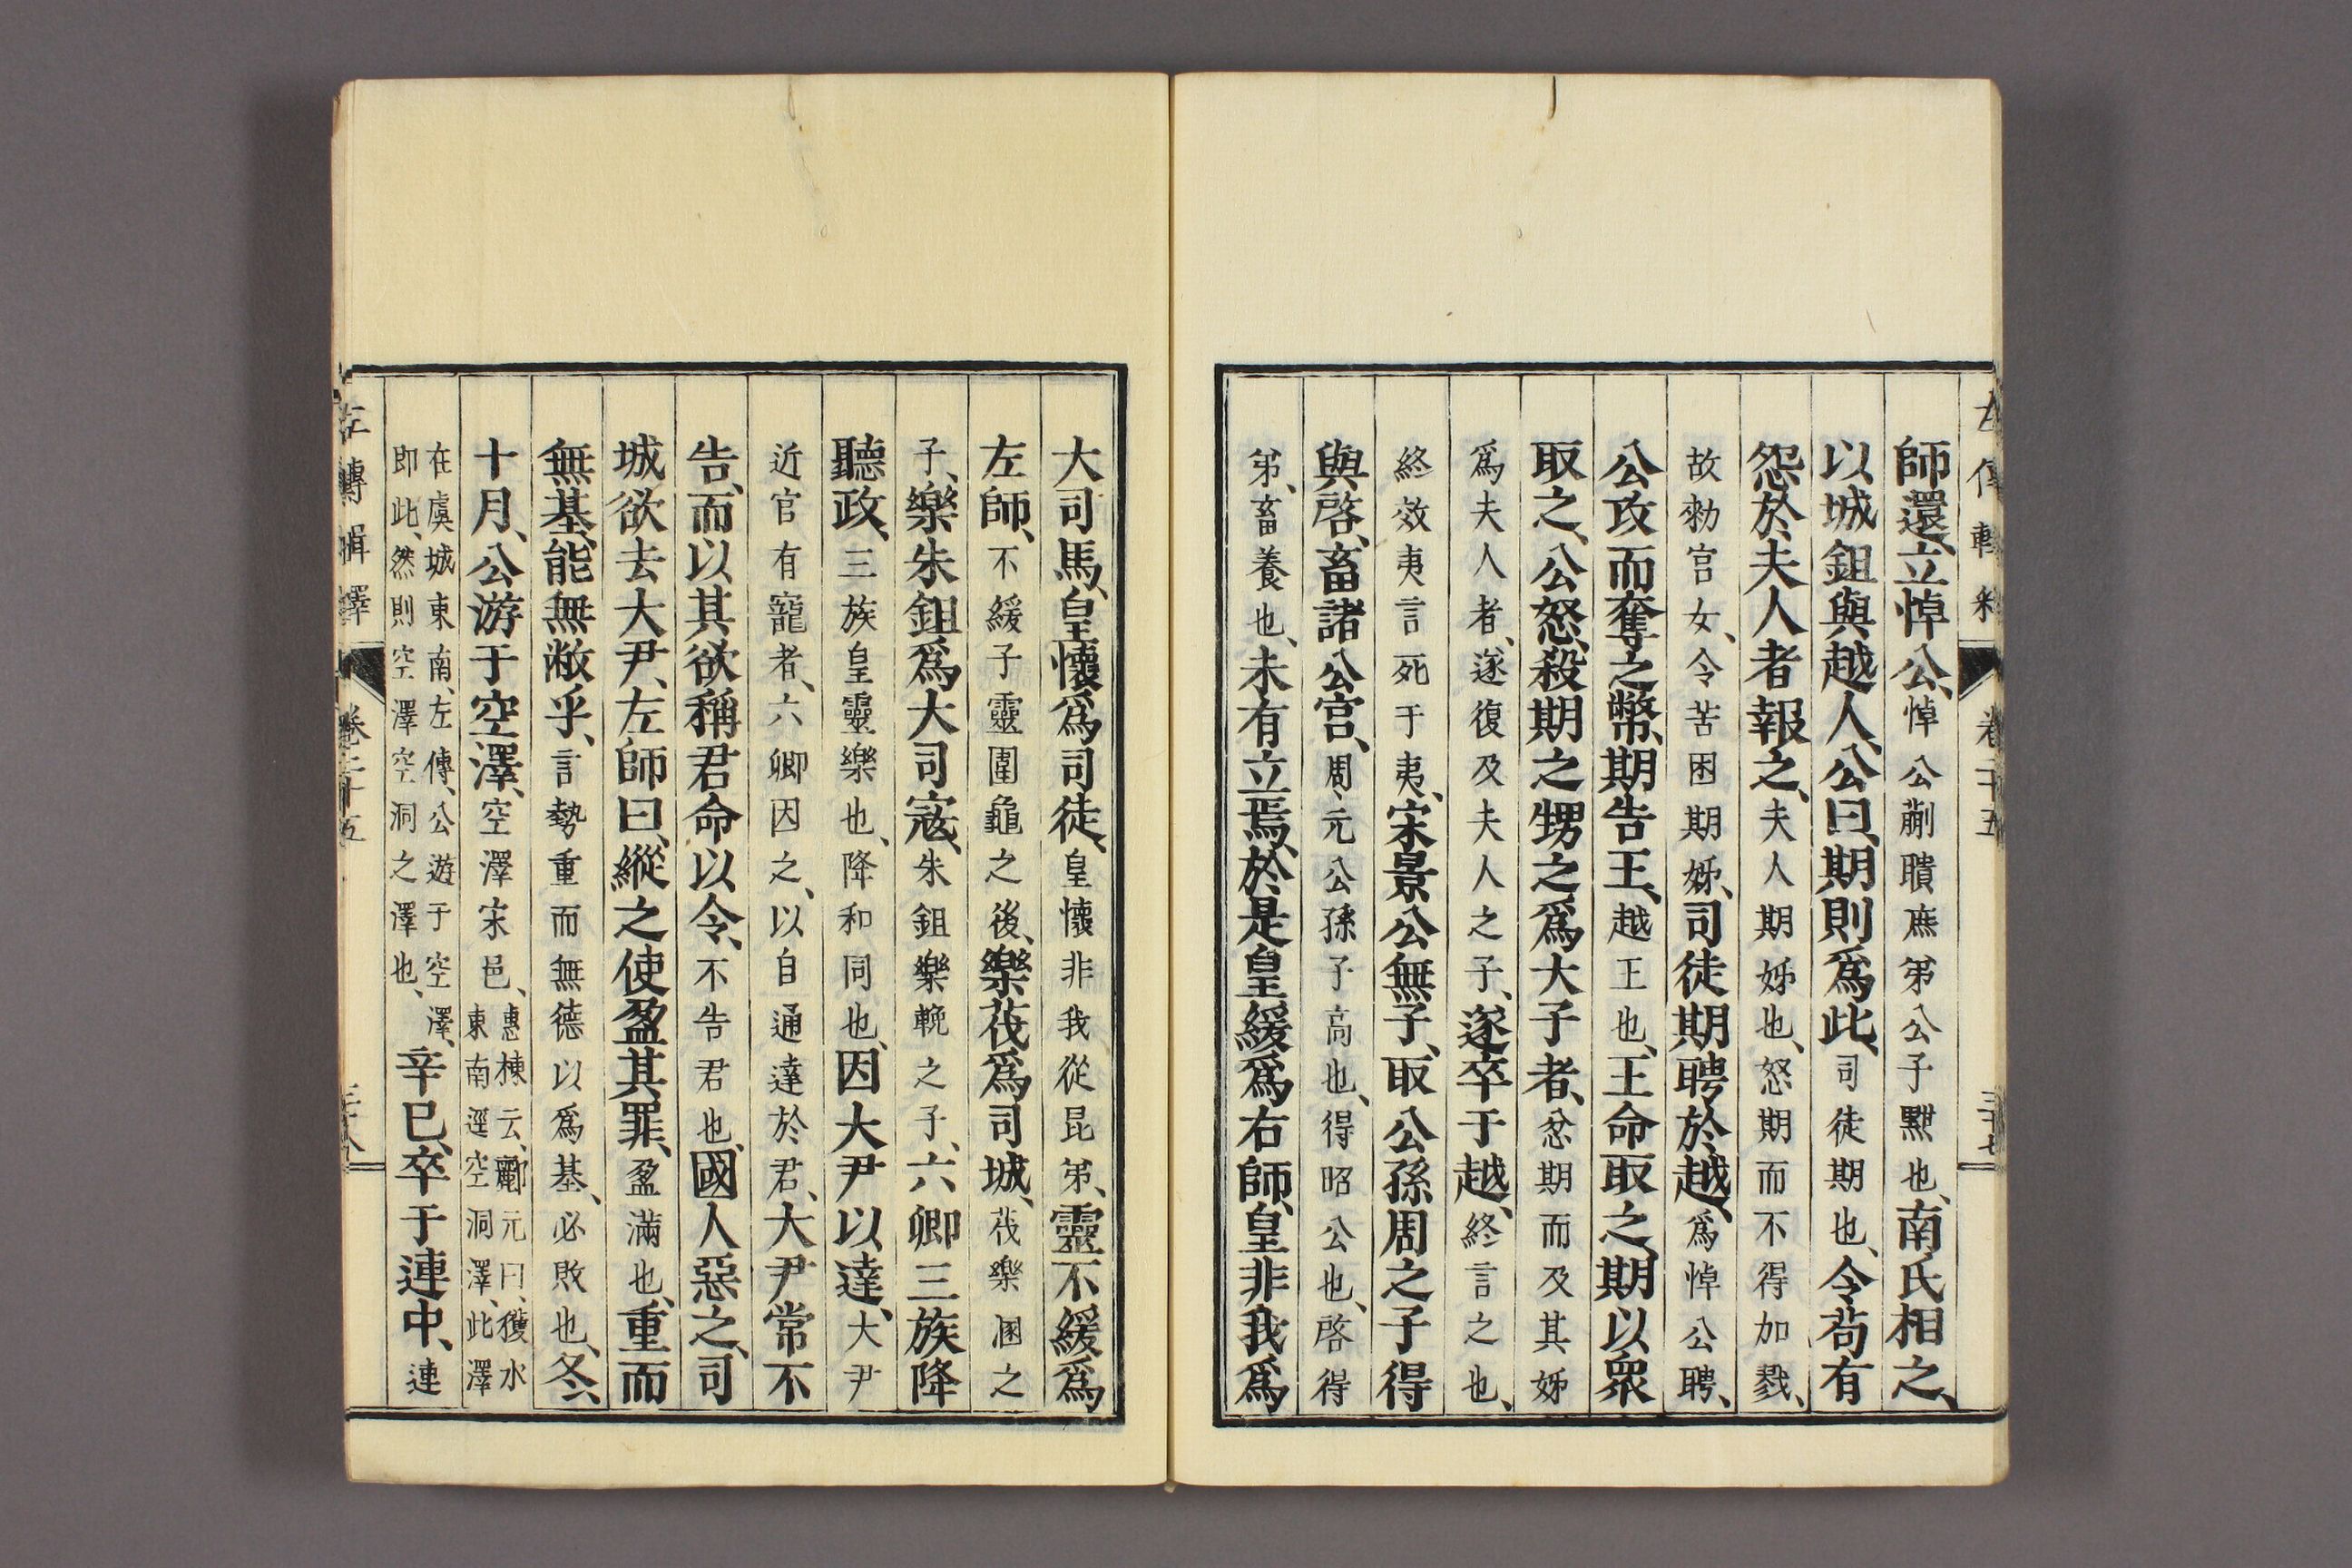 師還、立悼公、悼公蒯聵庶弟公子黚也、南氏相之、
以城鉏與越人、公曰、期則爲此、司徒期也、令茍有
怨於夫人者報之、夫人期姊也、怒期而不得加戮、
故勑宮女、令苦困期姊、司徒期聘於越、爲悼公聘、
公攻而奪之幣、期告王、越王也、王命取之、期以眾
取之、公怒、殺期之甥之爲大子者、忿期而及其姊
爲夫人者、遂復及夫人之子、遂卒于越、終言之也、
終效夷言死于夷、宋景公無子、取公孫周之子得
與啓、畜諸公宮、周、元公孫子高也、得昭公也、啓得
弟、畜養也、未有立焉、於是皇緩爲右師、皇非我爲
大司馬、皇懷爲司徒、皇懷非我從昆弟、靈不緩爲
左師、不緩子靈圍龜之後、樂茷爲司城、茷樂溷之
子、樂朱鉏爲大司寇、朱鉏樂輓之子、六卿三族降
聽政、三族皇靈樂也、降和同也、因大尹以達、大尹
近官有寵者、六卿因之、以自通達於君、大尹常不
告、而以其欲稱君命以令、不告君也、國人惡之、司
城欲去大尹、左師曰、縱之使盈其罪、盈滿也、重而
無基、能無敝乎、言勢重而無德以爲基、必敗也、冬、
十月、公游于空澤、空澤宋邑、惠棟云、酈元曰、獲水東南逕空洞澤、此澤
在虞城東南、左傳、公遊于空澤、即此、然則空澤空洞之澤也、辛巳、卒于連中、連
左傳輯釋 卷二十五